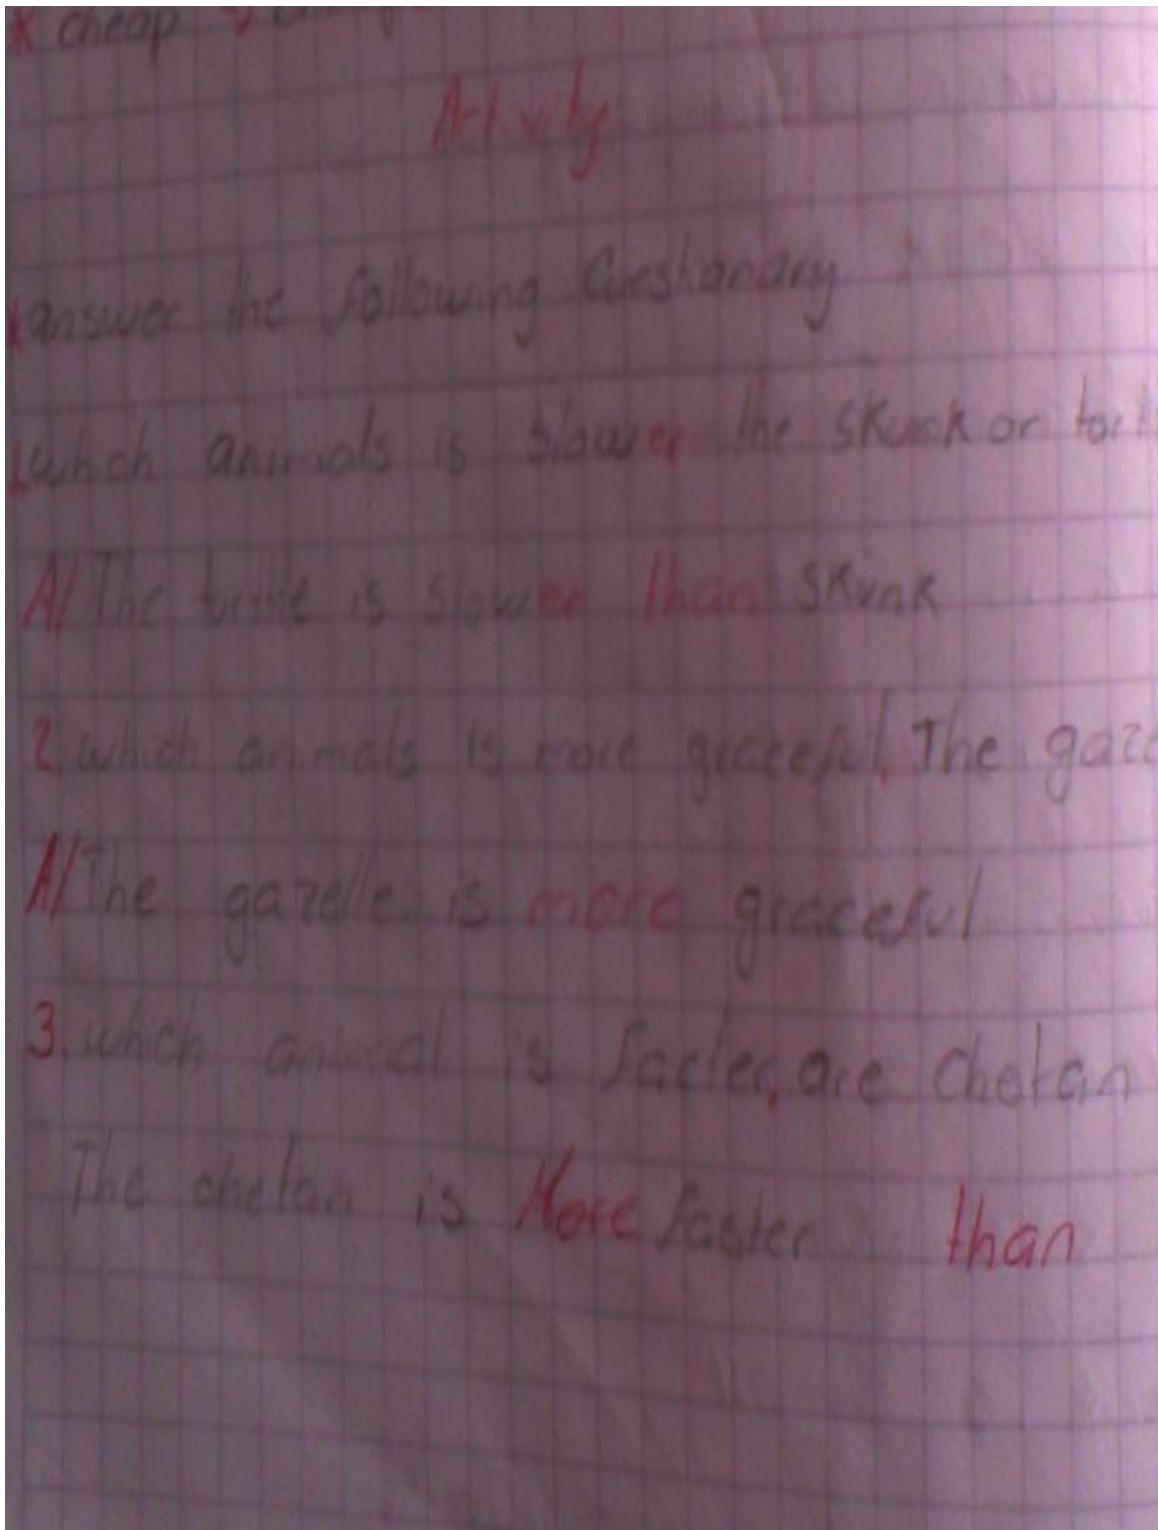 * cheap
Activity
answer the following Cuestionary
1. which animals is slower the skunk or
A/ The turtle is slower than skunk
2. which animals is more graceful, The
A/ The gazelle is more graceful
3. which animal is faster, are chetan
The chetan is More faster than